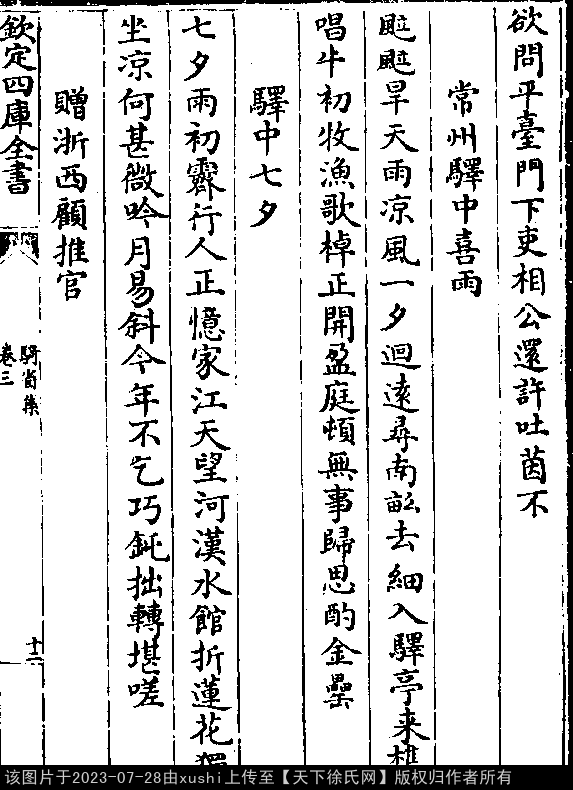 欲問平臺門下吏相公還許吐茵不
常州驛中喜雨
颭颭旱天雨凉風一夕迴遠尋南畝去細入驛亭来樵
唱牛初牧漁歌棹正開盈庭頓無事歸思酌金罍
驛中七夕
七夕雨初霽行人正憶家江天望河漢水館折蓮花獨
坐凉何甚微吟月易斜今年不乞巧鈍拙轉堪嗟
贈浙西顧推官
欽定四庫全書
騎省集
卷三
十二
该图片于2023-07-28由xushi上传至【天下徐氏网】版权归作者所有